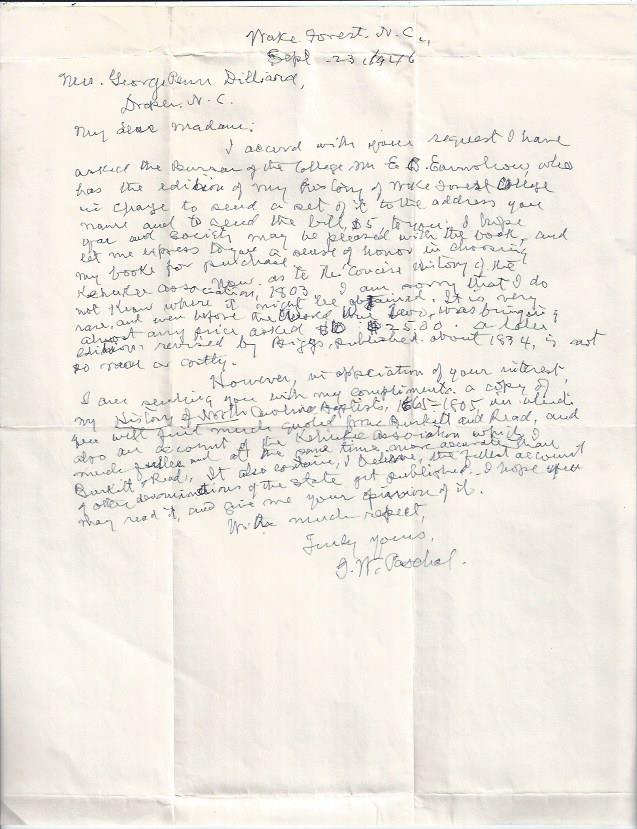 Wake Forest, N.C.,
Sept. 23, 1946
Mrs. George Penn Dilliard,
Draper, N.C.
My dear Madam:
I accord with your request I have
asked the Bursar of the College Mr E. B. Earnshaw, who
has the edition of my History of Wake Forest College
in charge to send a set of it to the address you
name and to send the bill, $5, to you. I hope
you and society may be pleased with the book, and
let me express to you a sense of honor in choosing
my books for purchase.
Now as to the Concise History of the
Kehukee Association, 1803 I am sorry that I do
not know where it might be obtained. It is very
rare, and even before the World War two, was bringing
almost any price asked $25.00. A later
edition, revised by Biggs, published about 1834, is not
so rare or costly.
However, in appreciation of your interest,
I am sending you with my compliments a copy of
my History of North Carolina Baptists, 1665-1805, in which
you will find much quoted from Burkitt and Read, and
also an account of the Kehukee Association which I
much fuller and at the same time more accurate than
Burkitt & Read. It also contains, I believe, the fullest account
of other denominations of the State yet published. I hope you
may read it, and give me your opinion of it.
With much respect,
Truly yours,
G. W. Paschal.